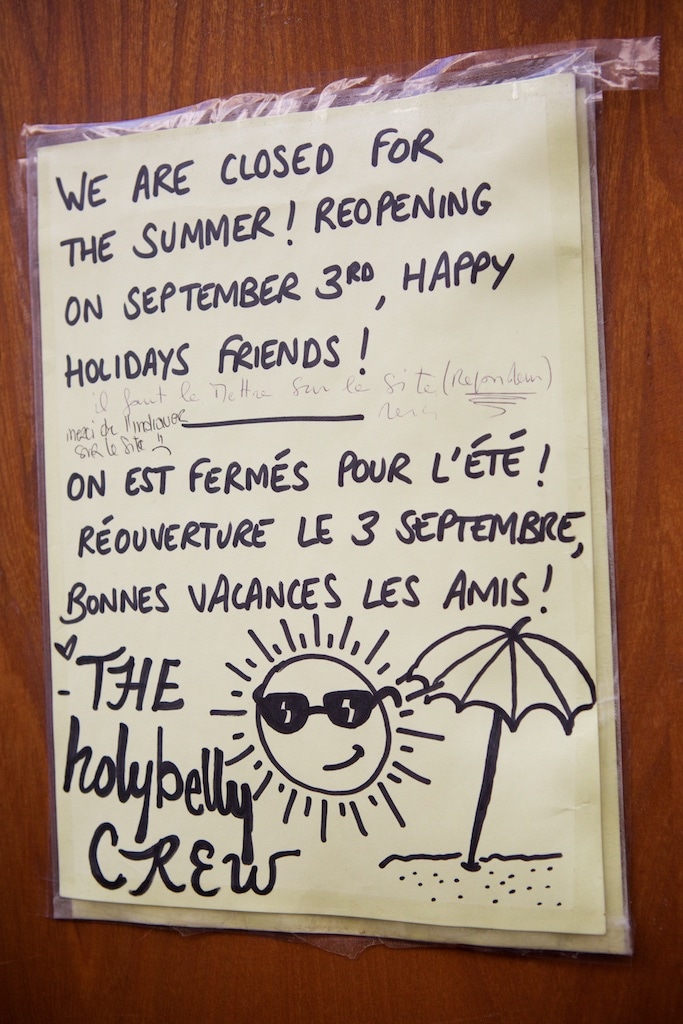 WE ARE CLOSED FOR
THE SUMMER! REOPENING
ON SEPTEMBER 3RD, HAPPY
HOLIDAYS FRIENDS!
il faut le mettre sur le site (Repondeur)
merci
merci de l'indiquer
sur le site !!
ON EST FERMÉS POUR L'ÉTÉ!
RÉOUVERTURE LE 3 SEPTEMBRE,
BONNES VACANCES LES AMIS!
- THE
holybelly
CREW